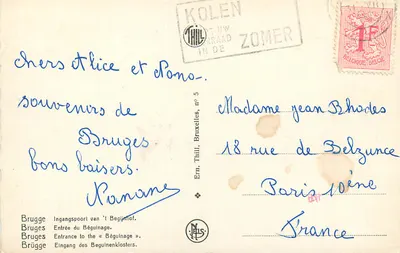 KOLEN
THILL
IN DE
ZOMER
1F
chers Alice et Nono.
souvenirs de
Bruges.
bons baisers.
Nanane
Ern. Thill, Bruxelles, n° 5
Madame Jean Rhodes
18 rue de Belzunce
Paris 10ène
France
Brugge Ingangspoort van 't Begijnhof.
Bruges Entrée du Béguinage.
Bruges Entrance to the « Béguinage ».
Brügge Eingang des Beguinenklosters.
NELS